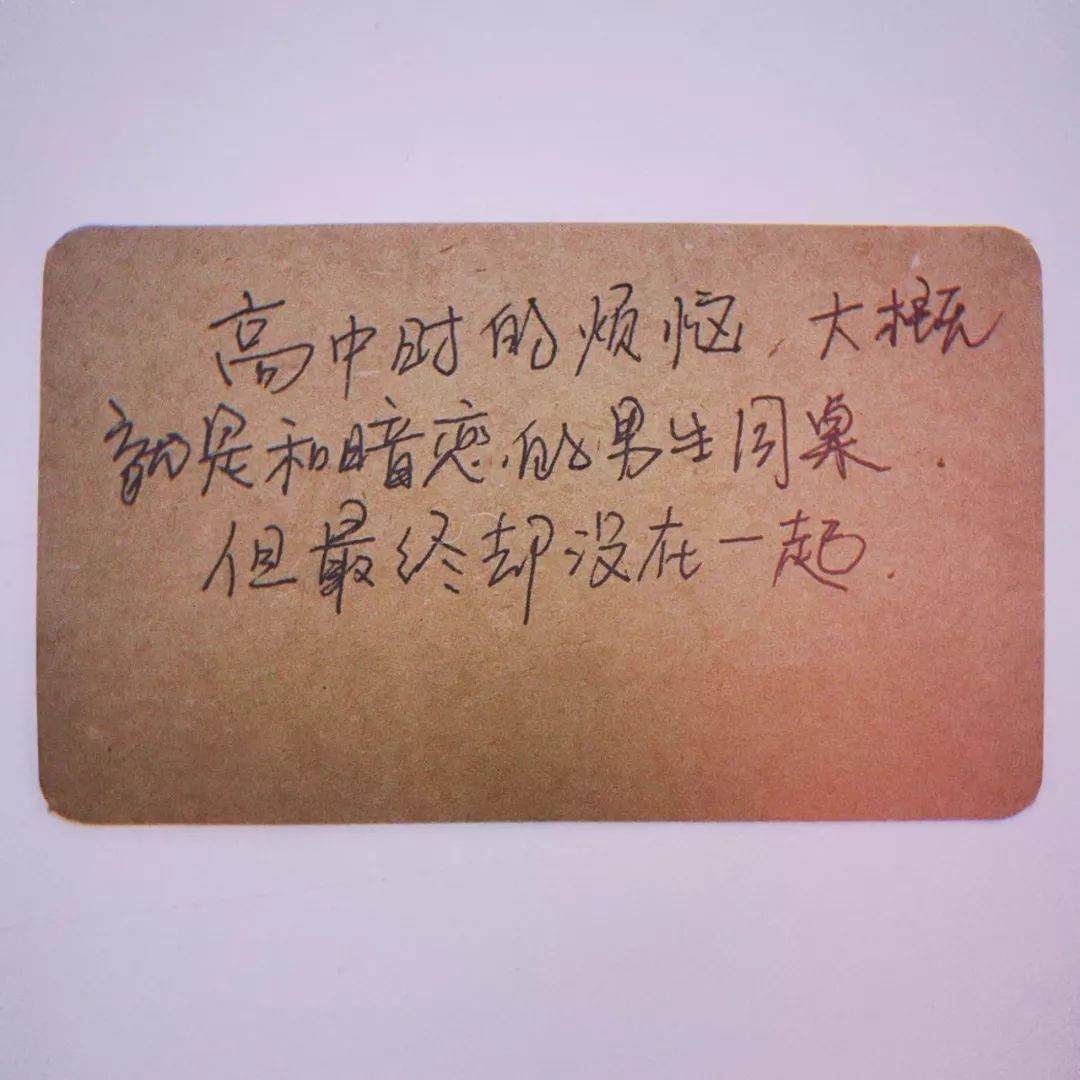 高中时的烦恼,大概
就是和暗恋的男生同桌.
但最终却没在一起.